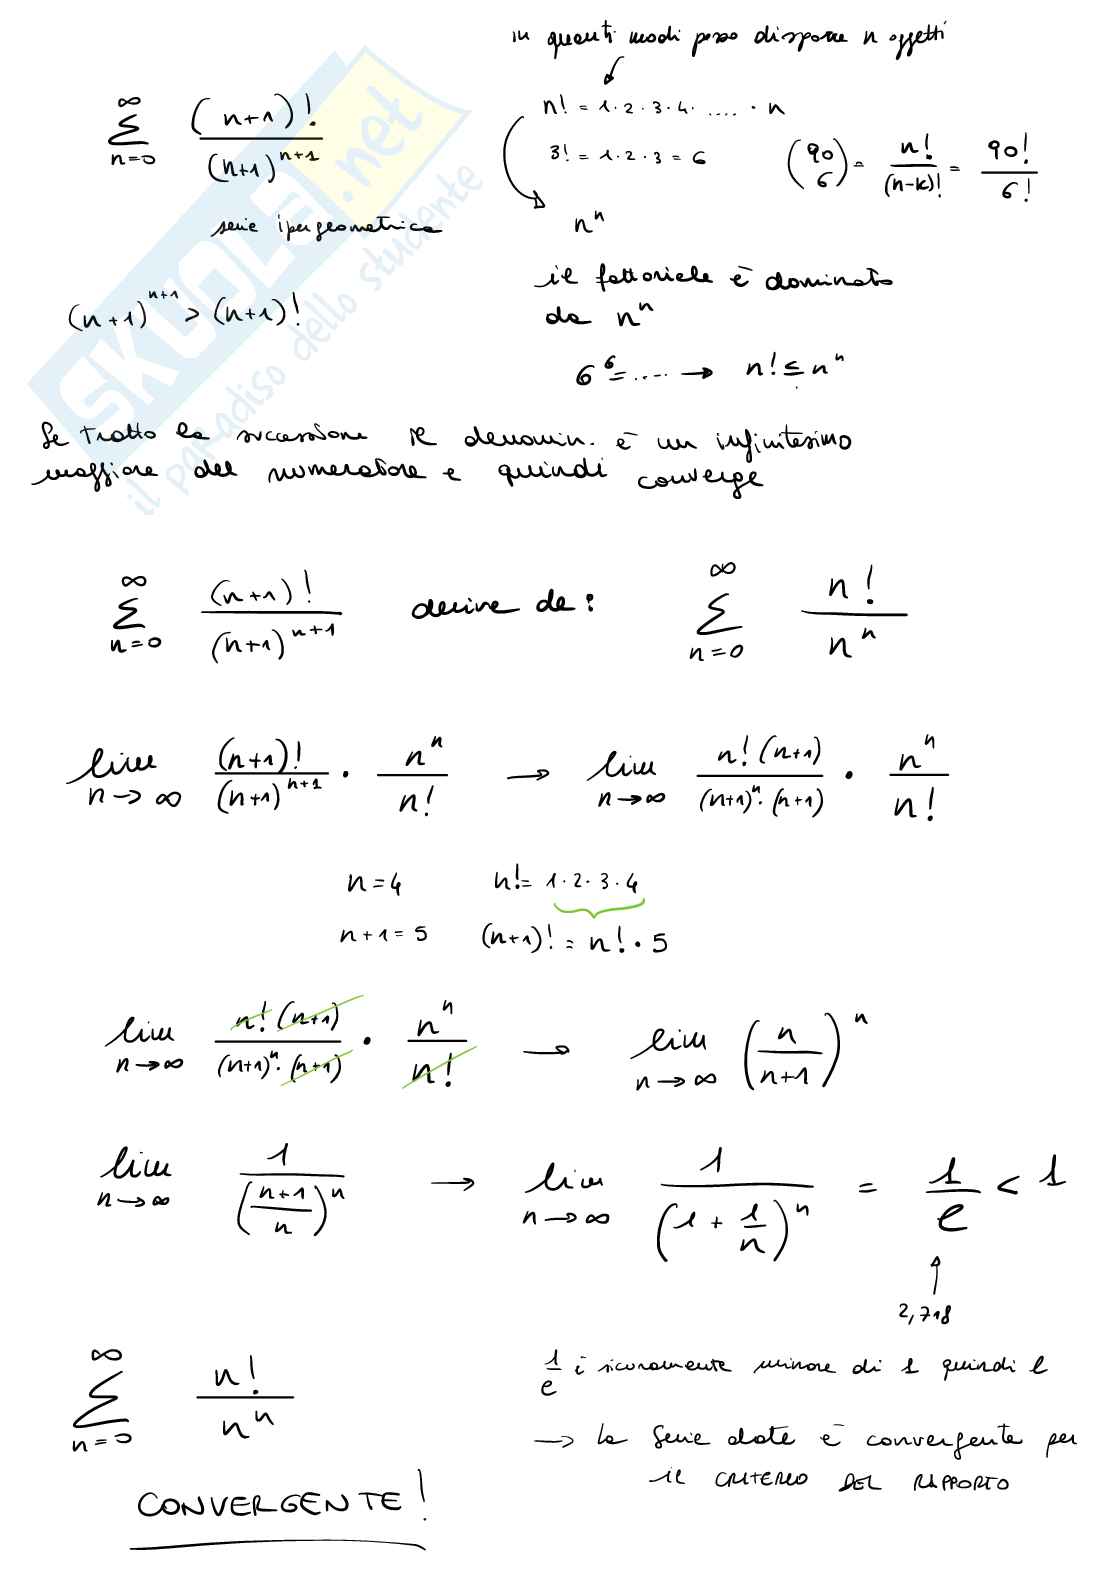 in quanti modi posso disporre n oggetti
∞ Σ n=0 (n+1)! / (n+1)^{n+1}
n! = 1·2·3·4· .... · n
3! = 1·2·3 = 6
(90 6) = n! / (n-k)! = 90! / 6!
n^n
serie ipergeometrica
il fattoriale è dominato
da n^n
(n+1)^{n+1} > (n+1)!
6^6 = .... → n! ≤ n^n
Se tratto la successione il denomin. è un infinitesimo
maggiore del numeratore e quindi converge
∞ Σ n=0 (n+1)! / (n+1)^{n+1} deriva da: ∞ Σ n=0 n! / n^n
lim n→∞ (n+1)! / (n+1)^{n+1} · n^n / n! → lim n→∞ n! (n+1) / (n+1)^n · (n+1) · n^n / n!
n = 4 n! = 1·2·3·4
n+1 = 5 (n+1)! = n! · 5
lim n→∞ n! (n+1) / (n+1)^n · (n+1) · n^n / n! → lim n→∞ (n / n+1)^n
lim n→∞ 1 / (n+1 / n)^n → lim n→∞ 1 / (1 + 1/n)^n = 1/e < 1
2,718
∞ Σ n=0 n! / n^n
1/e è sicuramente minore di 1 quindi l
→ la serie data è convergente per
il CRITERIO DEL RAPPORTO
CONVERGENTE!
SKUOLA.net
il paradiso dello studente